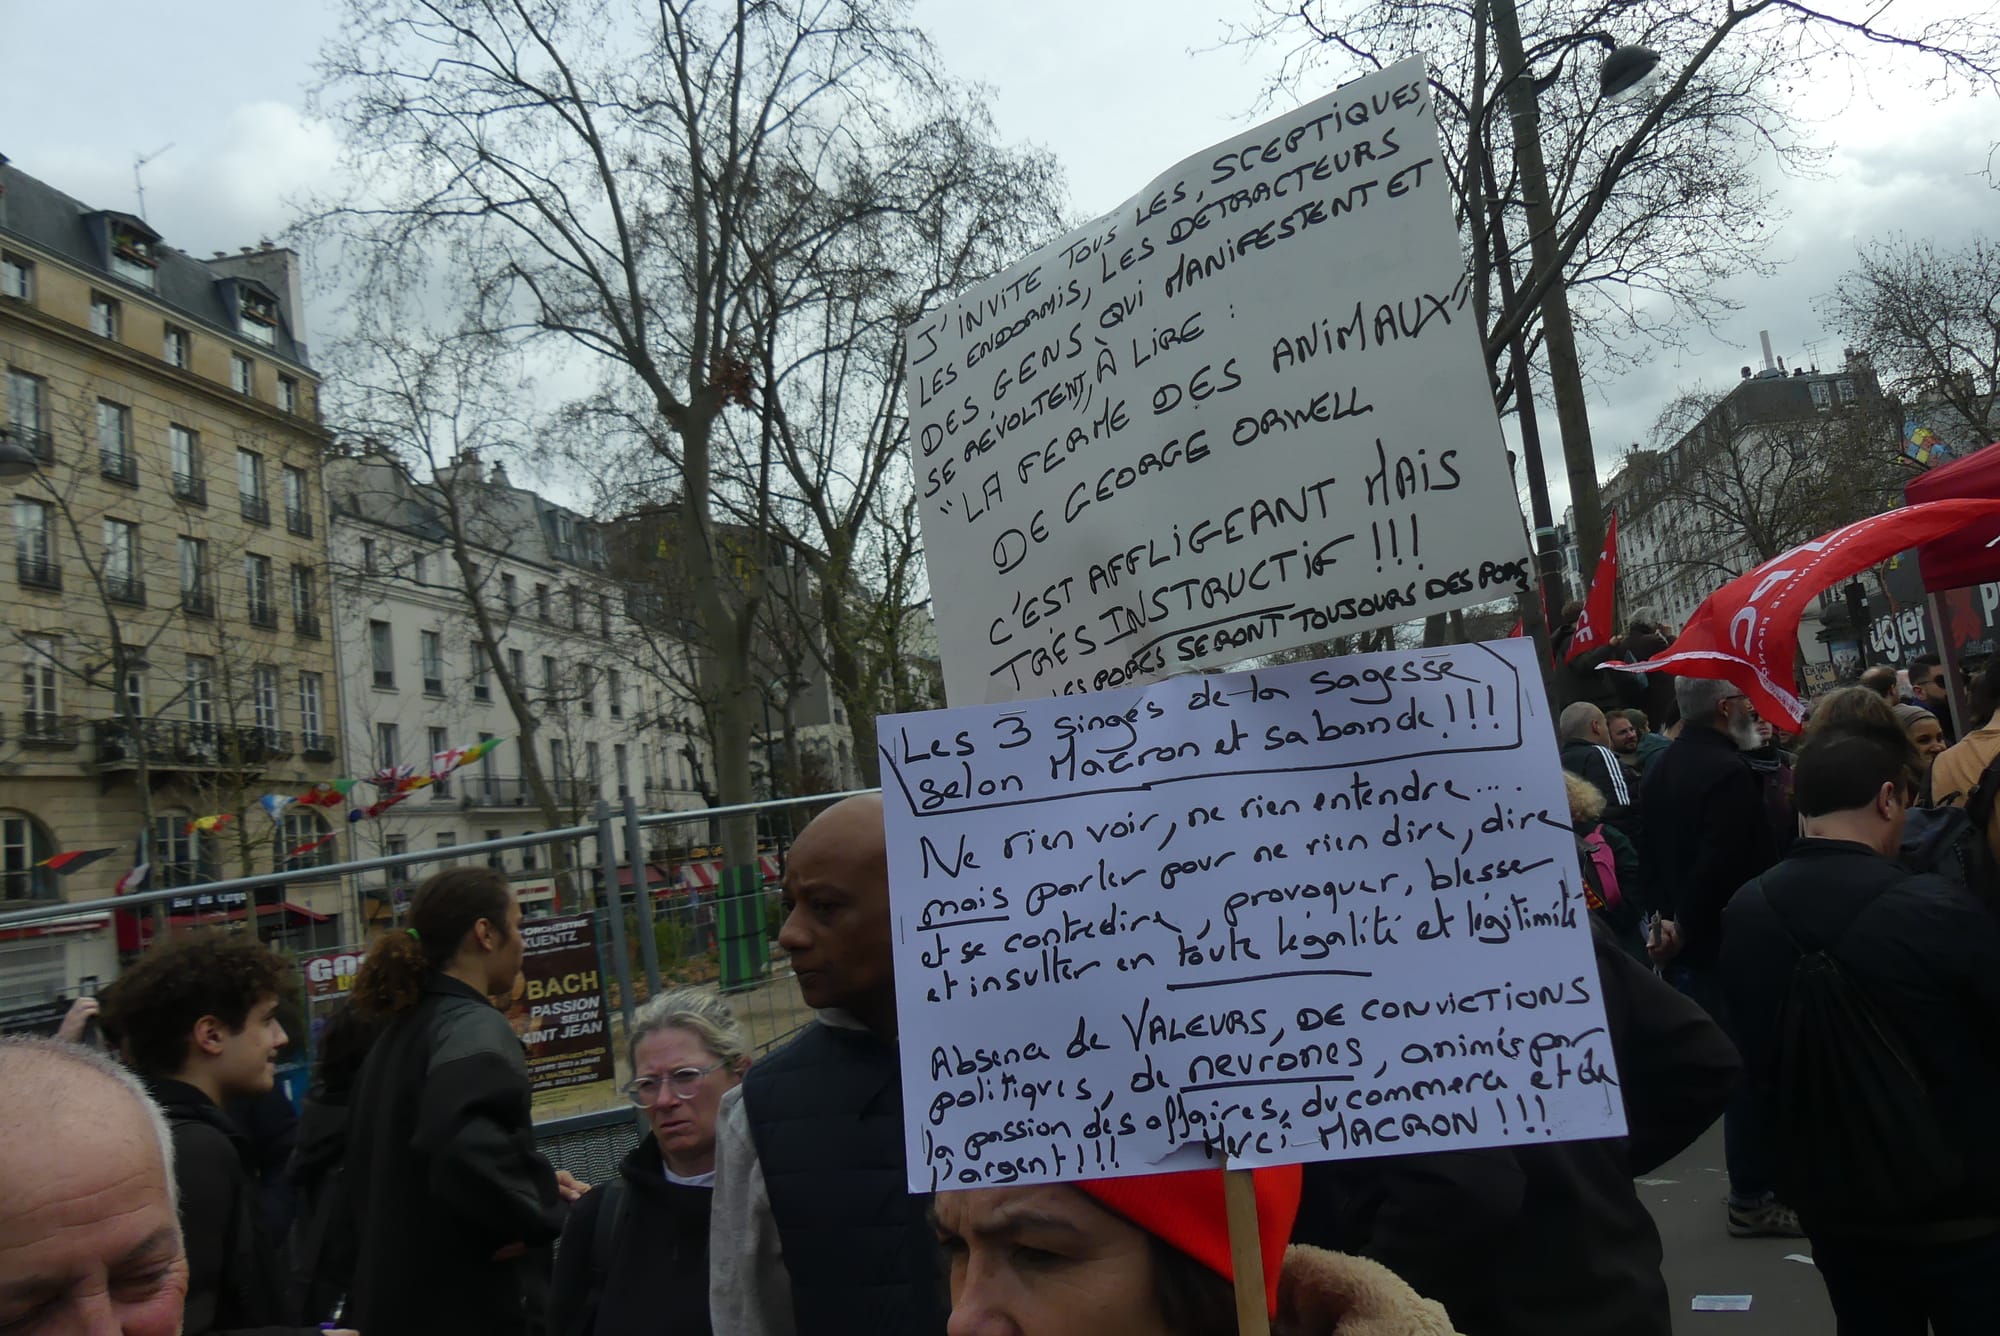 J'INVITE TOUS LES, SCEPTIQUES,
LES ENDORMIS, LES DÉTRACTEURS
DES GENS QUI MANIFESTENT ET
SE RÉVOLTENT, À LIRE :
"LA FERME DES ANIMAUX",
DE GEORGE ORWELL
C'EST AFFLIGEANT MAIS
TRÈS INSTRUCTIF !!!
LES PORCS SERONT TOUJOURS DES PORCS
Les 3 singes de la sagesse
selon Macron et sa bande !!!
Ne rien voir, ne rien entendre...
mais parler pour ne rien dire, dire
et se contredire, provoquer, blesser
et insulter en toute légalité et légitimité
Absence de VALEURS, DE CONVICTIONS
politiques, de neurones, animés par
la passion des affaires, du commerce et de
l'argent !!! Merci MACRON !!!
ORCHESTRE
KUENTZ
BACH
PASSION
SELON
SAINT JEAN
GO
Bar du
CF